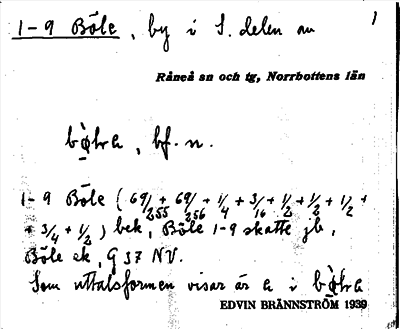 1-9 Böle, by i S. delen av
1
Råneå sn och tg, Norrbottens län
bø̀lra, bf. n.
1-9 Böle (69/255 + 69/256 + 1/4 + 3/16 + 1/2 + 1/2 + 1/2 +
+ 3/4 + 1/2) bek, Böle 1-9 skatte jb,
Böle ek, G 37 NV.
Som uttalsformen visar är a i bø̀lra
EDVIN BRÄNNSTRÖM 1939